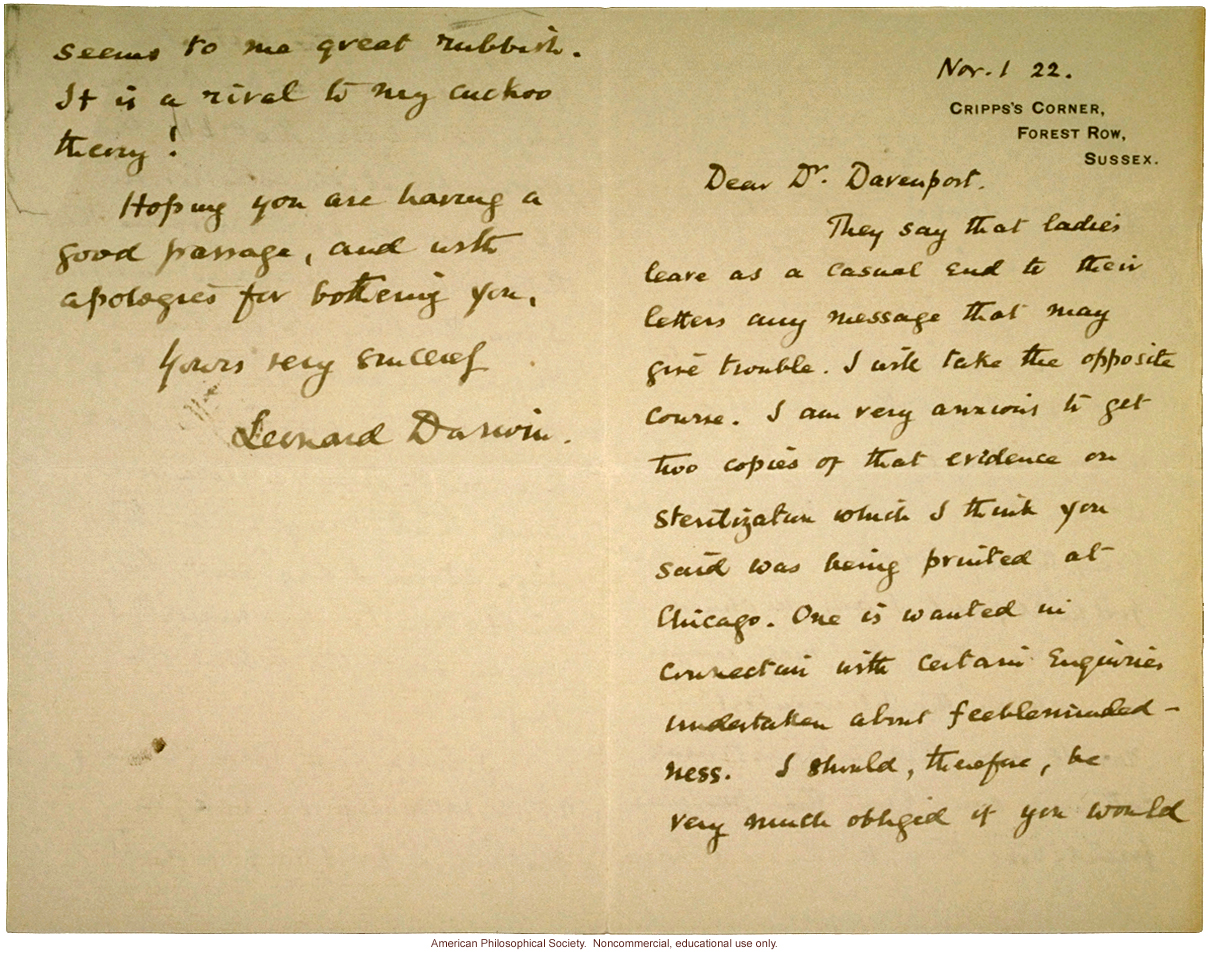 seems to me great rubbish.
It is a rival to my cuckoo
theory!
Hoping you are having a
good passage, and with
apologies for bothering you.
Yours very sincerely
Leonard Darwin.
Nov. 1 22.
CRIPPS'S CORNER,
FOREST ROW,
SUSSEX.
Dear Dr. Davenport.
They say that ladies
leave as a casual end to their
letters any message that may
give trouble. I will take the opposite
course. I am very anxious to get
two copies of that evidence on
Sterilization which I think you
said was being printed at
Chicago. One is wanted in
connection with certain Enquiries
undertaken about feebleminded-
ness. I should, therefore, be
very much obliged if you would
American Philosophical Society. Noncommercial, educational use only.